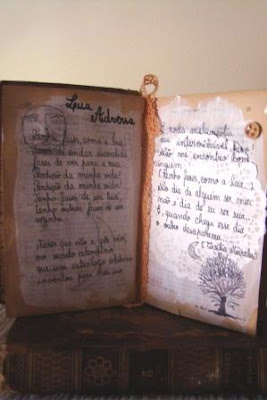 Lua
Adversa
Tenho fases, como a lua
fases de andar escondida
fases de vir para a rua
Perdição da minha vida!
Perdição da minha vida!
Tenho fases de ser tua,
tenho outras fases de ser
sozinha.
Fases que vão e que vêm,
no secreto calendário
que um astrólogo arbitrário
inventou para meu uso
E roda melancolia
seu interminável
não me encontro com
ninguém
(Tenho fases, como a lua...
No dia de alguém ser meu
não é dia de eu ser sua...
E, quando chega esse dia
o outro desapareceu...
(Cecília Meireles)